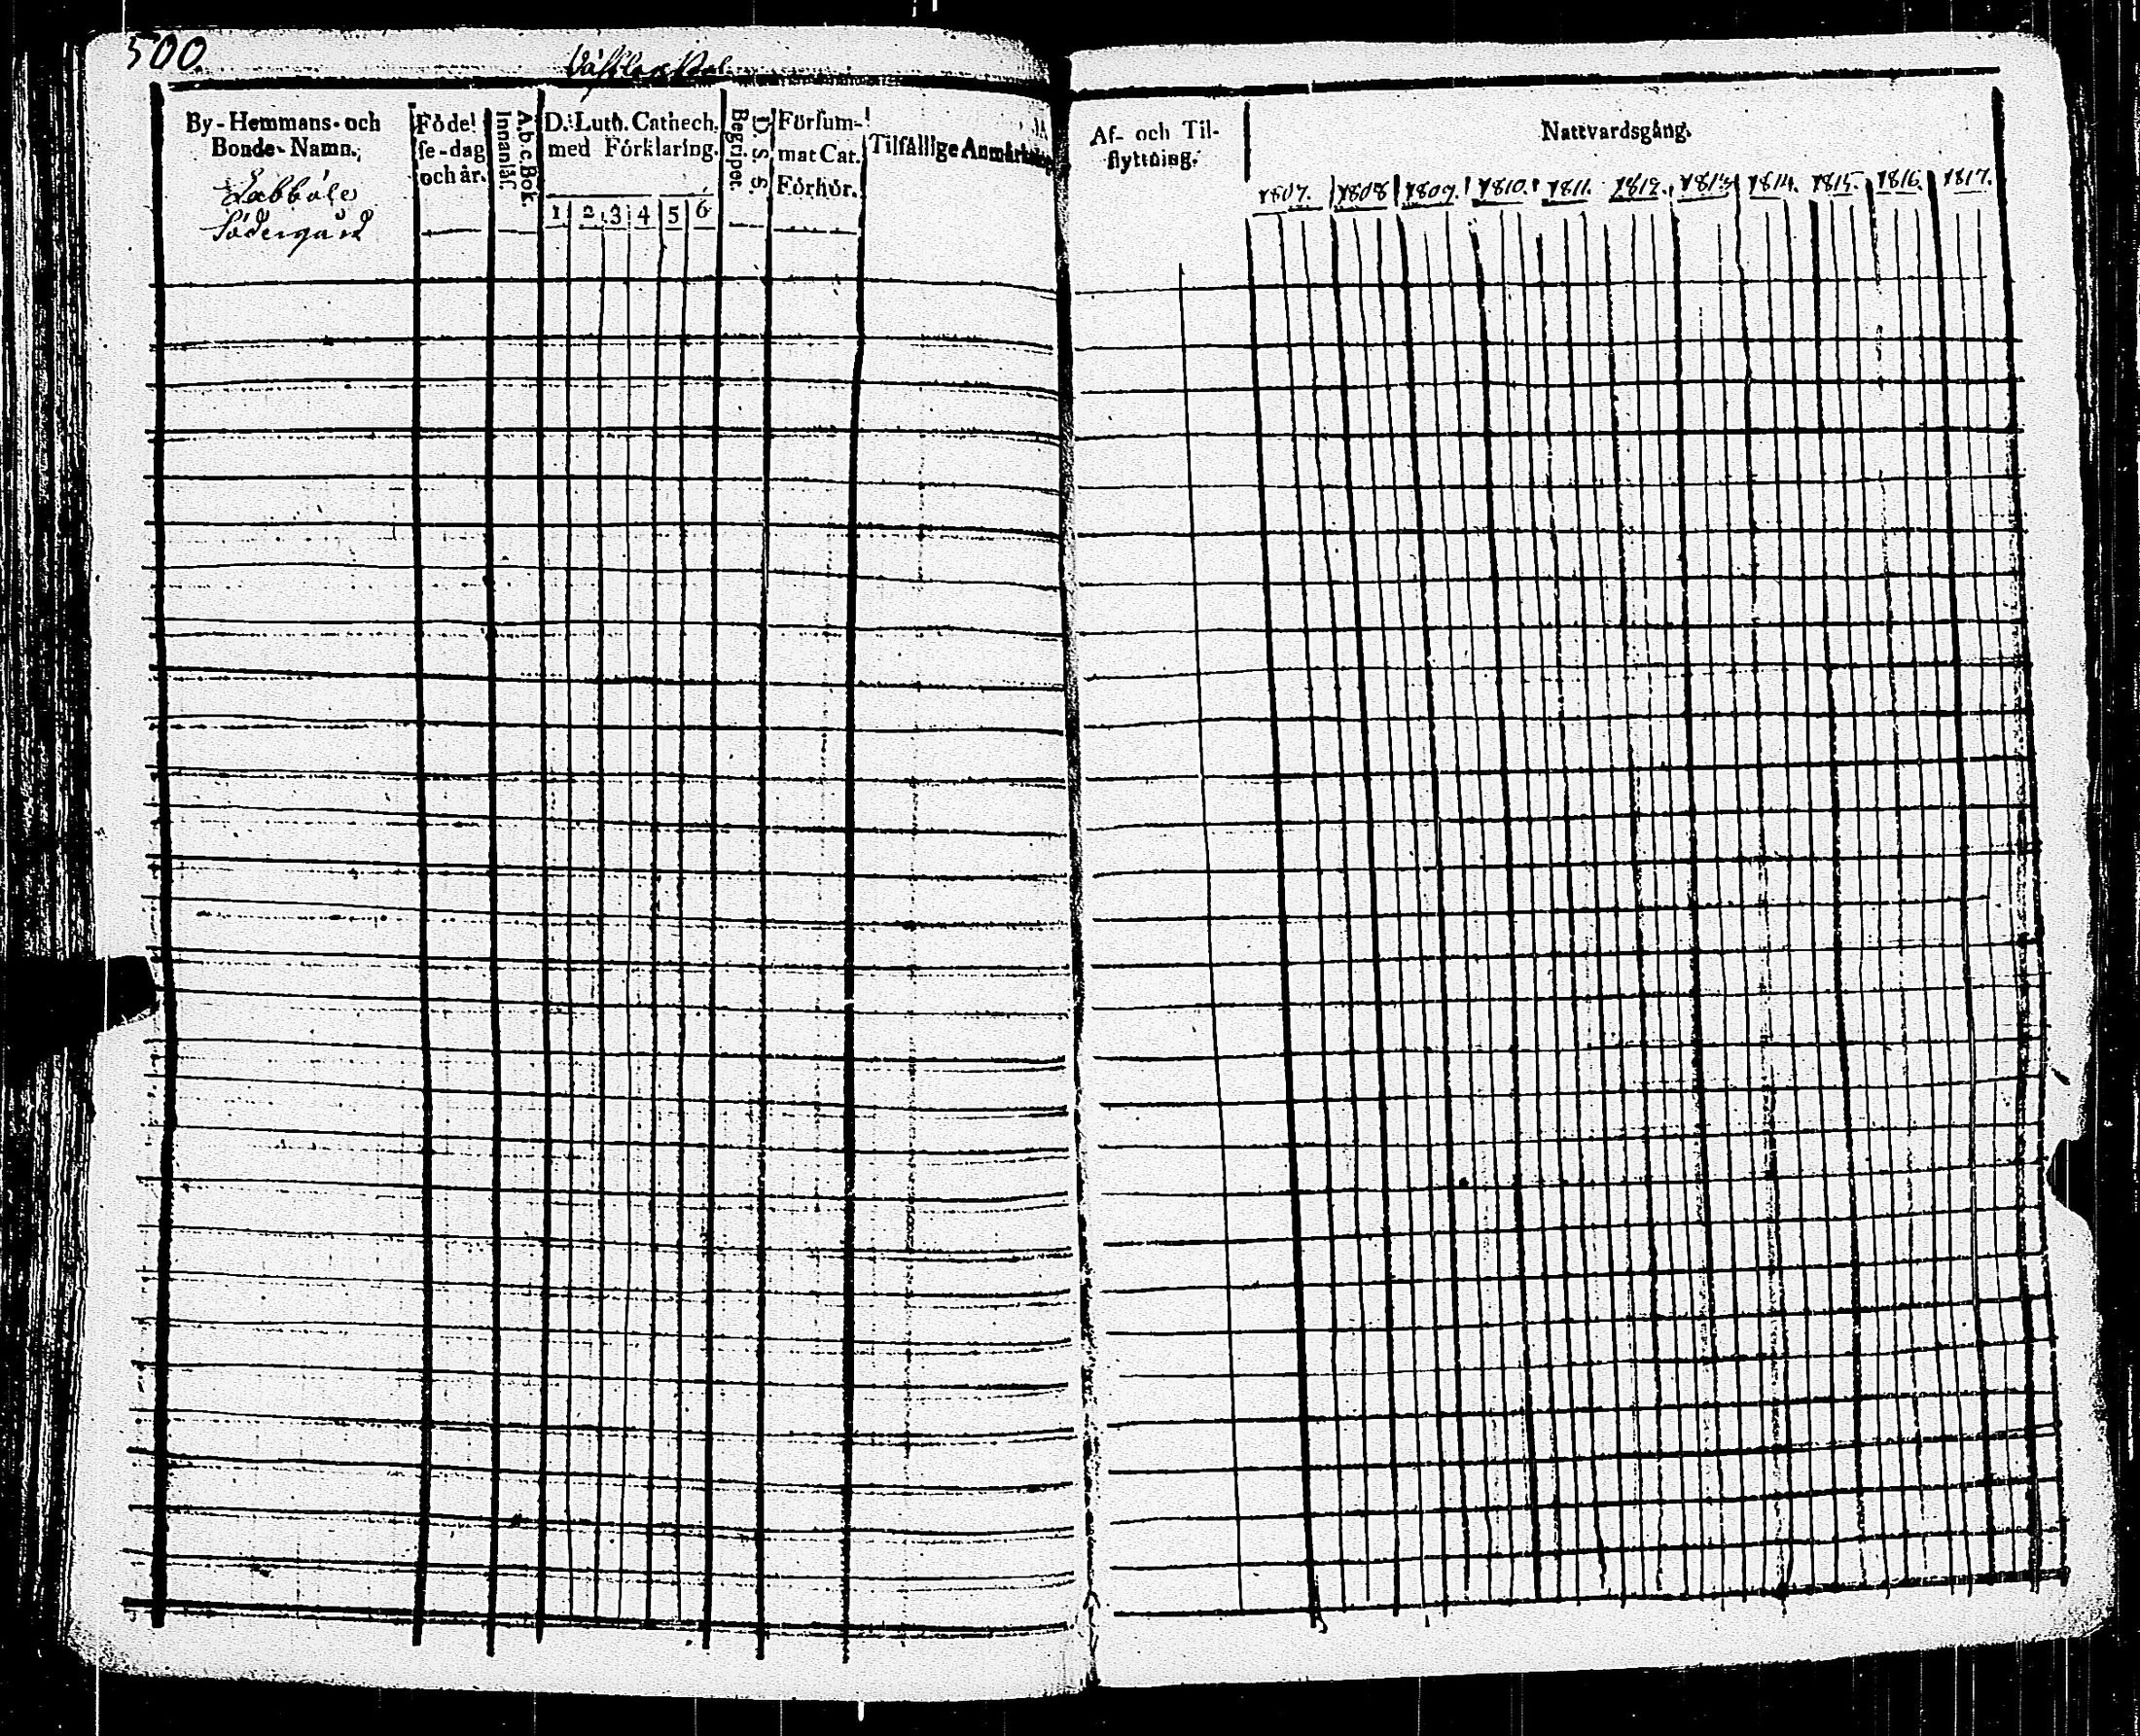 500.
By-Hemmans- och
Bonde-Namn.
Labböle
Södergård
Föde!
se-dag
och år.
A.b.c. Bok.
Innanläs.
D. Luth. Cathech.
med Förklaring.
1 2 3 4 5 6
Begripet.
D. S. S.
Försum-
mat Cat.
Förhör.
Tilfällige Anmärkn
Af- och Til-
flyttning.
Nattvardsgång.
1807. 1808 1809. 1810. 1811. 1812. 1813. 1814. 1815. 1816. 1817.